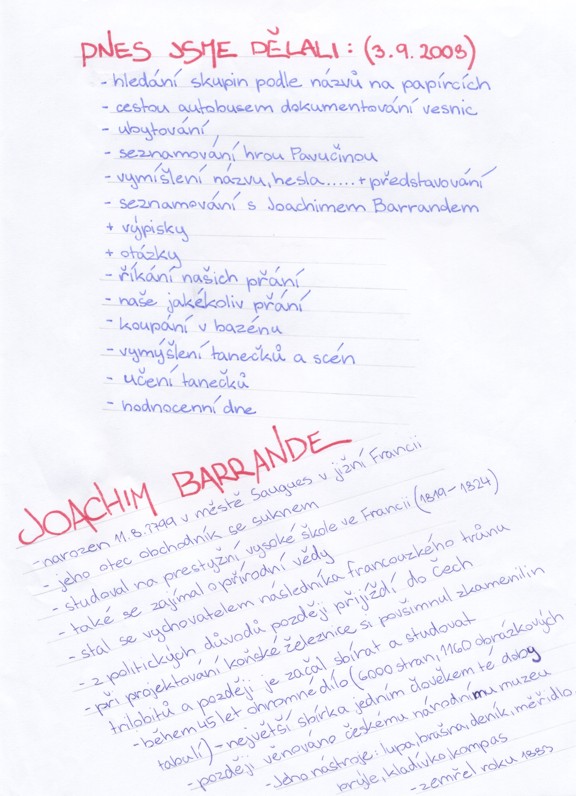 DNES JSME DĚLALI: (3.9.2008)
- hledání skupin podle názvů na papírcích
- cestou autobusem dokumentování vesnic
- ubytování
- seznamování hrou Pavučinou
- vymíšlení názvu, hesla.....+představování
- seznamování s Joachimem Barrandem
+ výpisky
+ otázky
- říkání našich přání
- naše jakékoliv přání
- koupání v bazénu
- vymýšlení tanečků a scén
- učení tanečků
- hodnocenní dne
JOACHIM BARRANDE
- narozen 11.8.1799 v městě Saugues v jižní Francii
- jeho otec obchodník se suknem
- studoval na prestyžní vysoké škole ve Francii (1819-1824)
- také se zajímal o přírodní vědy
- stal se vychovatelem následníka francouzkého trůnu
- z politických důvodů později přijíždí do Čech
- při projektování koňské železnice si povšimnul zkamenilin
trilobitů a později je začal sbírat a studovat
- během 45 let ohromné dílo (6000 stran, 1160 obrázkových
tabulí) - největší sbírka jedním člověkem té doby
- později věnováno českému národnímu muzeu
- Jeho nástroje: lupa, brašna, deník, měřidlo
brýle, kladívko, kompas
- zemřel roku 1883